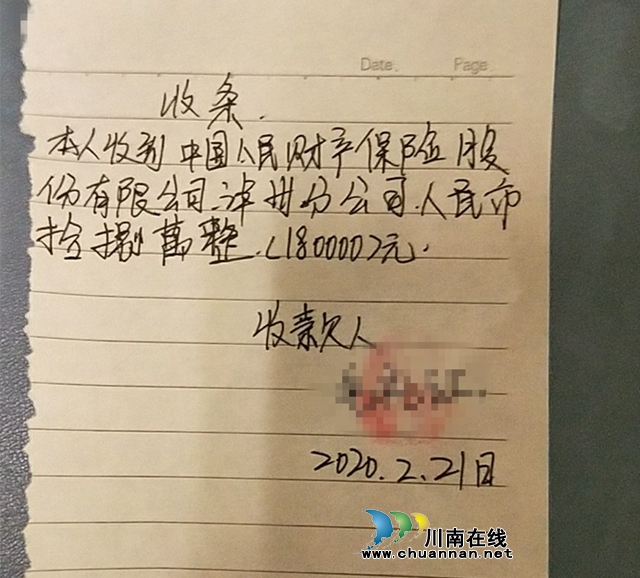 Date.
Page.
收条.
本人收到中国人民财产保险股
份有限公司漳州分公司.人民币
拾捌萬整.(180000)元.
收款人
2020.2.21日
川南在线
www.chuannan.net